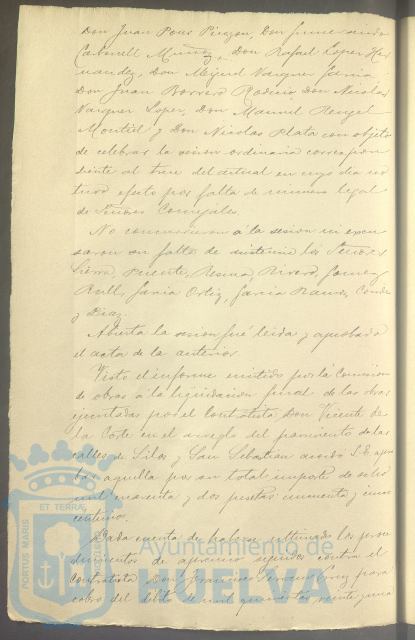 Don Juan Pons Pinzon, Don Inmersindo
Carbonell Muñoz, Don Rafael Lopez Her
nandez, Don Miguel Vazquez Garcia
Don Juan Borrero Rodicio Don Nicolas
Vazquez Lopez, Don Manuel Rengel
Montiel y Don Nicolas Plata con objeto
de celebrar la sesion ordinaria correspon
diente al trece del actual en cuyo dia no
tuvo efecto por falta de numero legal
de Señores Concejales
No concurrieron á la sesion ni excu
saron su falta de asistencia los Señores
Sierra, Puente, Resma, Rivero, Gomez
Rull, Garcia Ortiz, Garcia Ramos, Conde
y Diaz.
Abierta la sesion fué leida y aprobada
el acta de la anterior
Visto el informe emitido por la Comision
de obras á la liquidacion final de las obras
ejecutadas por el Contratista Don Vicente de
la Corte en el arreglo del pavimento de las
calles de Silos y San Sebastian acordó S.E. apro
bar aquella por un total importe de seis
mil cuarenta y dos pesetas cincuenta y cinco
centimos.
Dada cuenta de haberse ultimado los proce
dimientos de apremio seguidos contra el
contratista Don Francisco Serrano para
cobro del débito de mil quinientas veinte
PORTUS MARIS
ET TERRAE
Ayuntamiento de
HUELVA